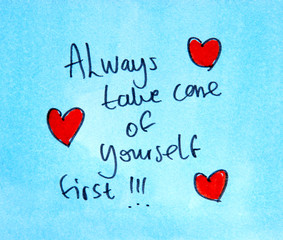 Always
take care
of
yourself
first !!!